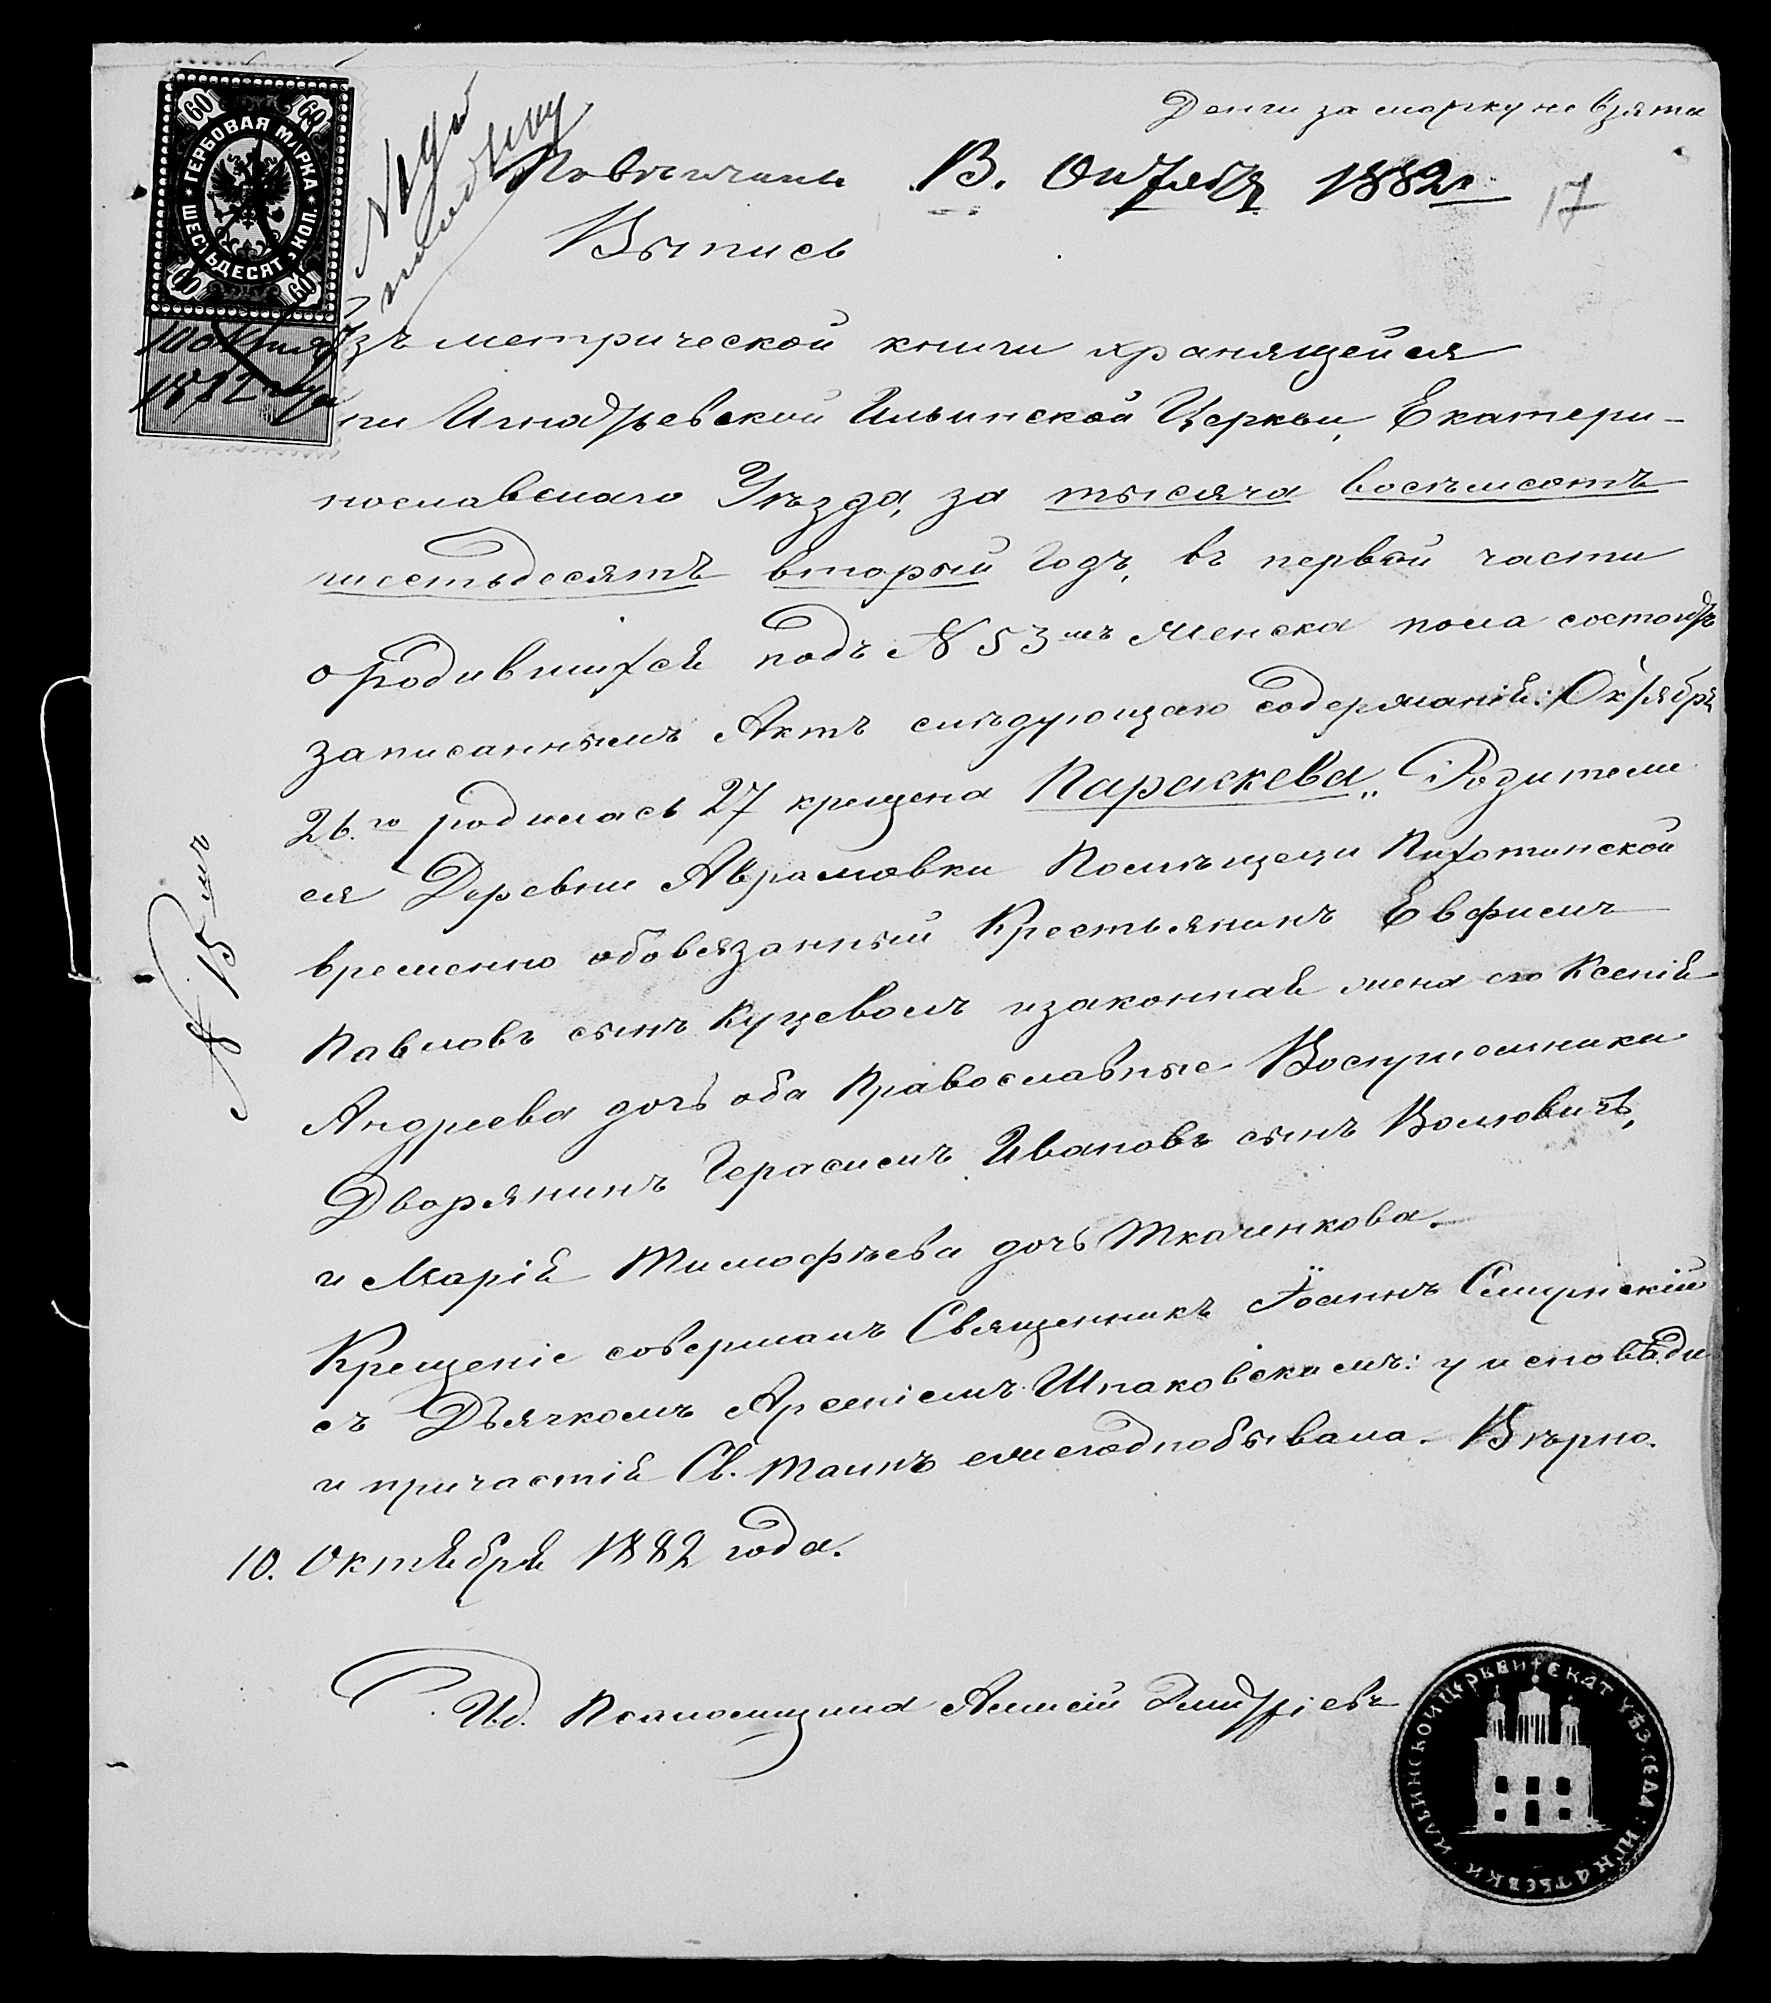 Деньги за марку не взята
Повѣнчаны В. Октября 1882 г
17
Выпись
ГЕРБОВАЯ МАРКА
ШЕСТЬДЕСЯТ КОП.
60 60 60 60
10 Октября
1882 года
изъ метрической книги хранящейся
при Игнатьевской Ильинской Церкви, Екатери-
нославскаго Уѣзда, за тысяча восемьсотъ
шестьдесятъ второй годъ, въ первой части
о родившихся подъ № 53мъ женска пола состоитъ
записаннымъ Актъ слѣдующаго содержанія: Октября
26.го родилась 27 крещена Параскева„ Родители
ея Деревни Аврамовки Помѣщецы Пихотинской
временно обовязанный Крестьянинъ Евфимъ
Павловъ сынъ Куцеволъ и законная жена его Ксенія
Андреева дочь оба Православные Воспріемники
Дворянинъ Герасимъ Ивановъ сынъ Воловичъ,
и Марія Тимофѣева дочь Ткаченкова.
Крещеніе совершалъ Священникъ Іоаннъ Смирнскій
съ Дьячкомъ Арсеніемъ Шпаковскимъ: у исповѣди
и причастія Св. Таинъ ежегодно бывала. Вѣрно.
10. Октября 1882 года.
И.д. Псаломщика Алексій Дмитріевъ
№ 15 мъ
ИЛЬИНСКОЙ ЦЕРЬВИ ЕКАТ УѢЗ. СЕЛА: ИГНАТЬЕВКИ